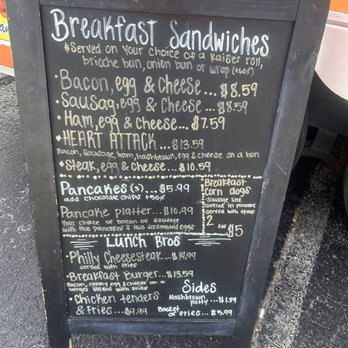 Breakfast Sandwiches
*Served on your choice of a kaiser roll,
brioche bun, onion bun or wrap
• Bacon, egg & cheese... $8.59
• Sausag, egg & cheese... $8.59
• Ham, egg & cheese... $7.59
*HEART ATTACK... $13.59
Bacon, sausage, ham, hashbrown, egg & cheese on a bun
• Steak, egg & cheese... $10.59
Pancakes (3)... $5.99
add chocolate chips
Pancake platter... $10.99
Your choice of bacon or sausage
with two pancakes & two
Breakfast
Corn dogs
Sausage link
covered in pancake
served with syrup
2
for $5
Lunch Bros
• Philly Cheesesteak... $14.99
served with fries
• Breakfast burger... $13.59
Bacon, egg & cheese on a
burger served with fries
• Chicken tenders
& Fries... $9.99
Sides
Hashbrown
patty $1.89
Basket
of fries... $5.99